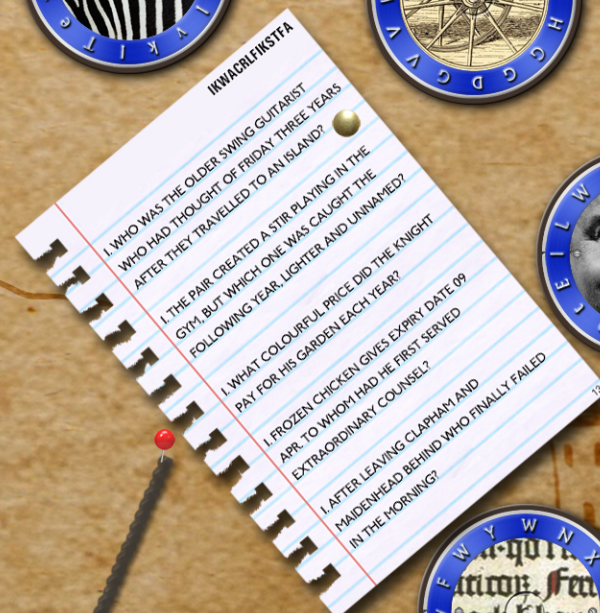 IKWACRLFIKSTFA
I. WHO WAS THE OLDER SWING GUITARIST
WHO HAD THOUGHT OF FRIDAY THREE YEARS
AFTER THEY TRAVELLED TO AN ISLAND?
I. THE PAIR CREATED A STIR PLAYING IN THE
GYM, BUT WHICH ONE WAS CAUGHT THE
FOLLOWING YEAR, LIGHTER AND UNNAMED?
I. WHAT COLOURFUL PRICE DID THE KNIGHT
PAY FOR HIS GARDEN EACH YEAR?
I. FROZEN CHICKEN GIVES EXPIRY DATE 09
APR. TO WHOM HAD HE FIRST SERVED
EXTRAORDINARY COUNSEL?
I. AFTER LEAVING CLAPHAM AND
MAIDENHEAD BEHIND WHO FINALLY FAILED
IN THE MORNING?
C E I L W
F W Y W N X